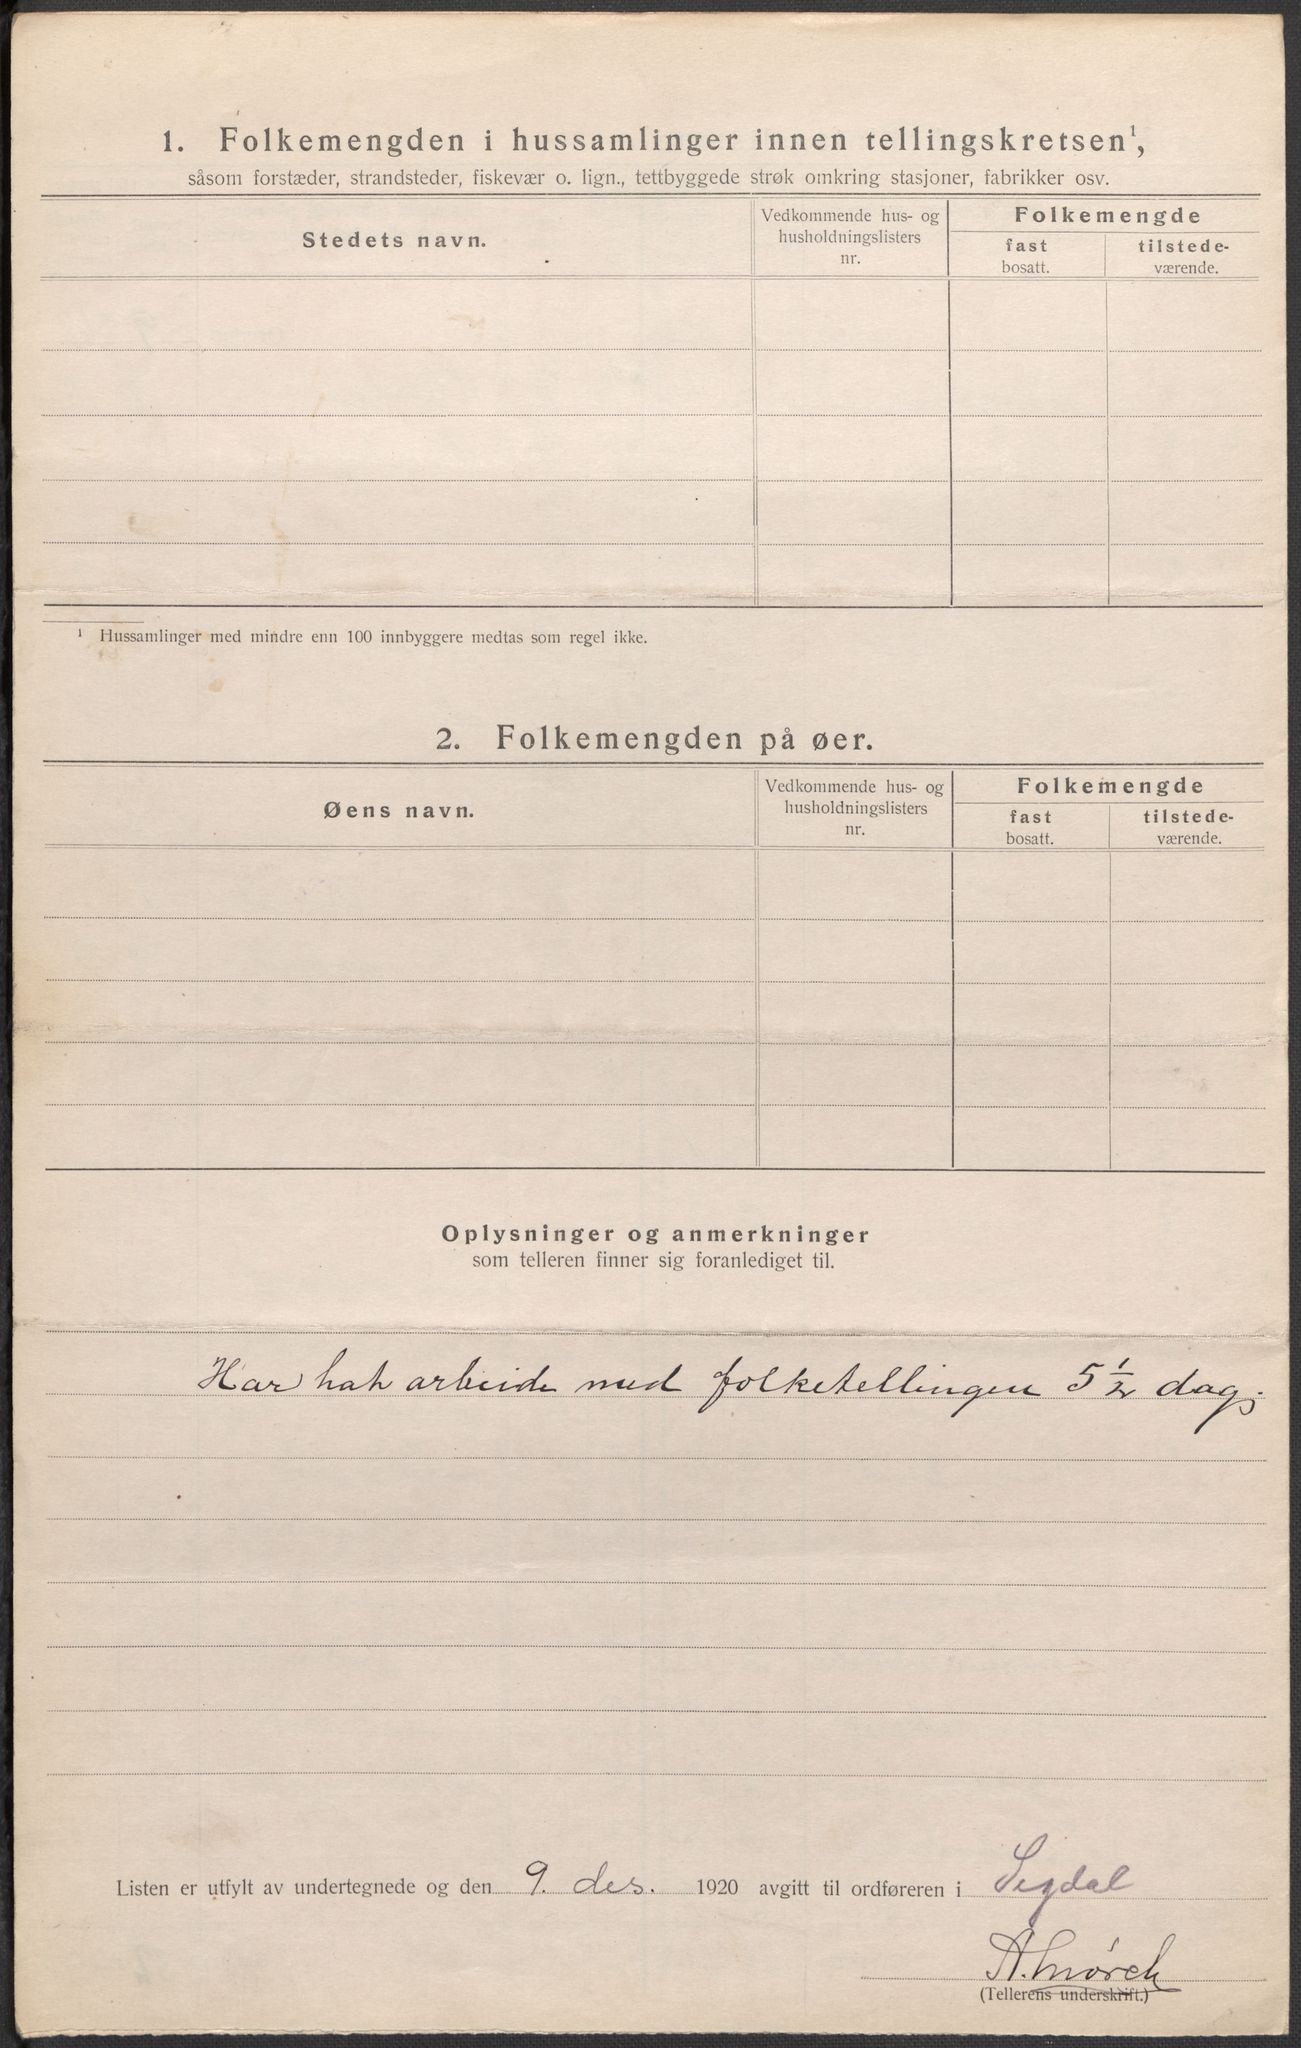 1. Folkemengden i hussamlinger innen tellingskretsen¹,
såsom forstæder, strandsteder, fiskevær o. lign., tettbyggede strøk omkring stasjoner, fabrikker osv.
Stedets navn.
Vedkommende hus- og
husholdningslisters
nr.
Folkemengde
fast
bosatt.
tilstede-
værende.
¹ Hussamlinger med mindre enn 100 innbyggere medtas som regel ikke.
2. Folkemengden på øer.
Øens navn.
Vedkommende hus- og
husholdningslisters
nr.
Folkemengde
fast
bosatt.
tilstede-
værende.
Oplysninger og anmerkninger
som telleren finner sig foranlediget til.
Har hat arbeide med folketellingen 5 ½ dag.
Listen er utfylt av undertegnede og den 9. des. 1920 avgitt til ordføreren i Sigdal
A. Mørch
(Tellerens underskrift.)